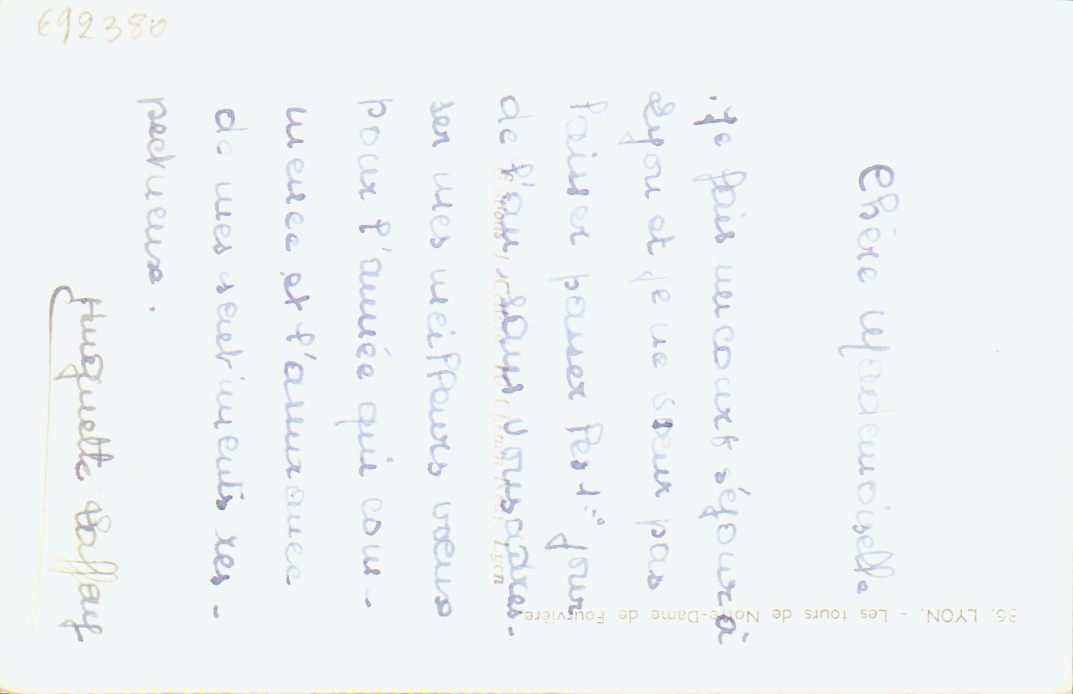 692380
Chère Mademoiselle
Je fais un court séjour à
Lyon et je ne veux pas
laisser passer les 1ers jour
de l'an, sans vous adres-
ser mes meilleurs vœux
pour l'année qui com-
mence et l'assurance
de mes sentiments res-
pectueux.
Huguette
36. LYON. - Les tours de Notre-Dame de Fourvière